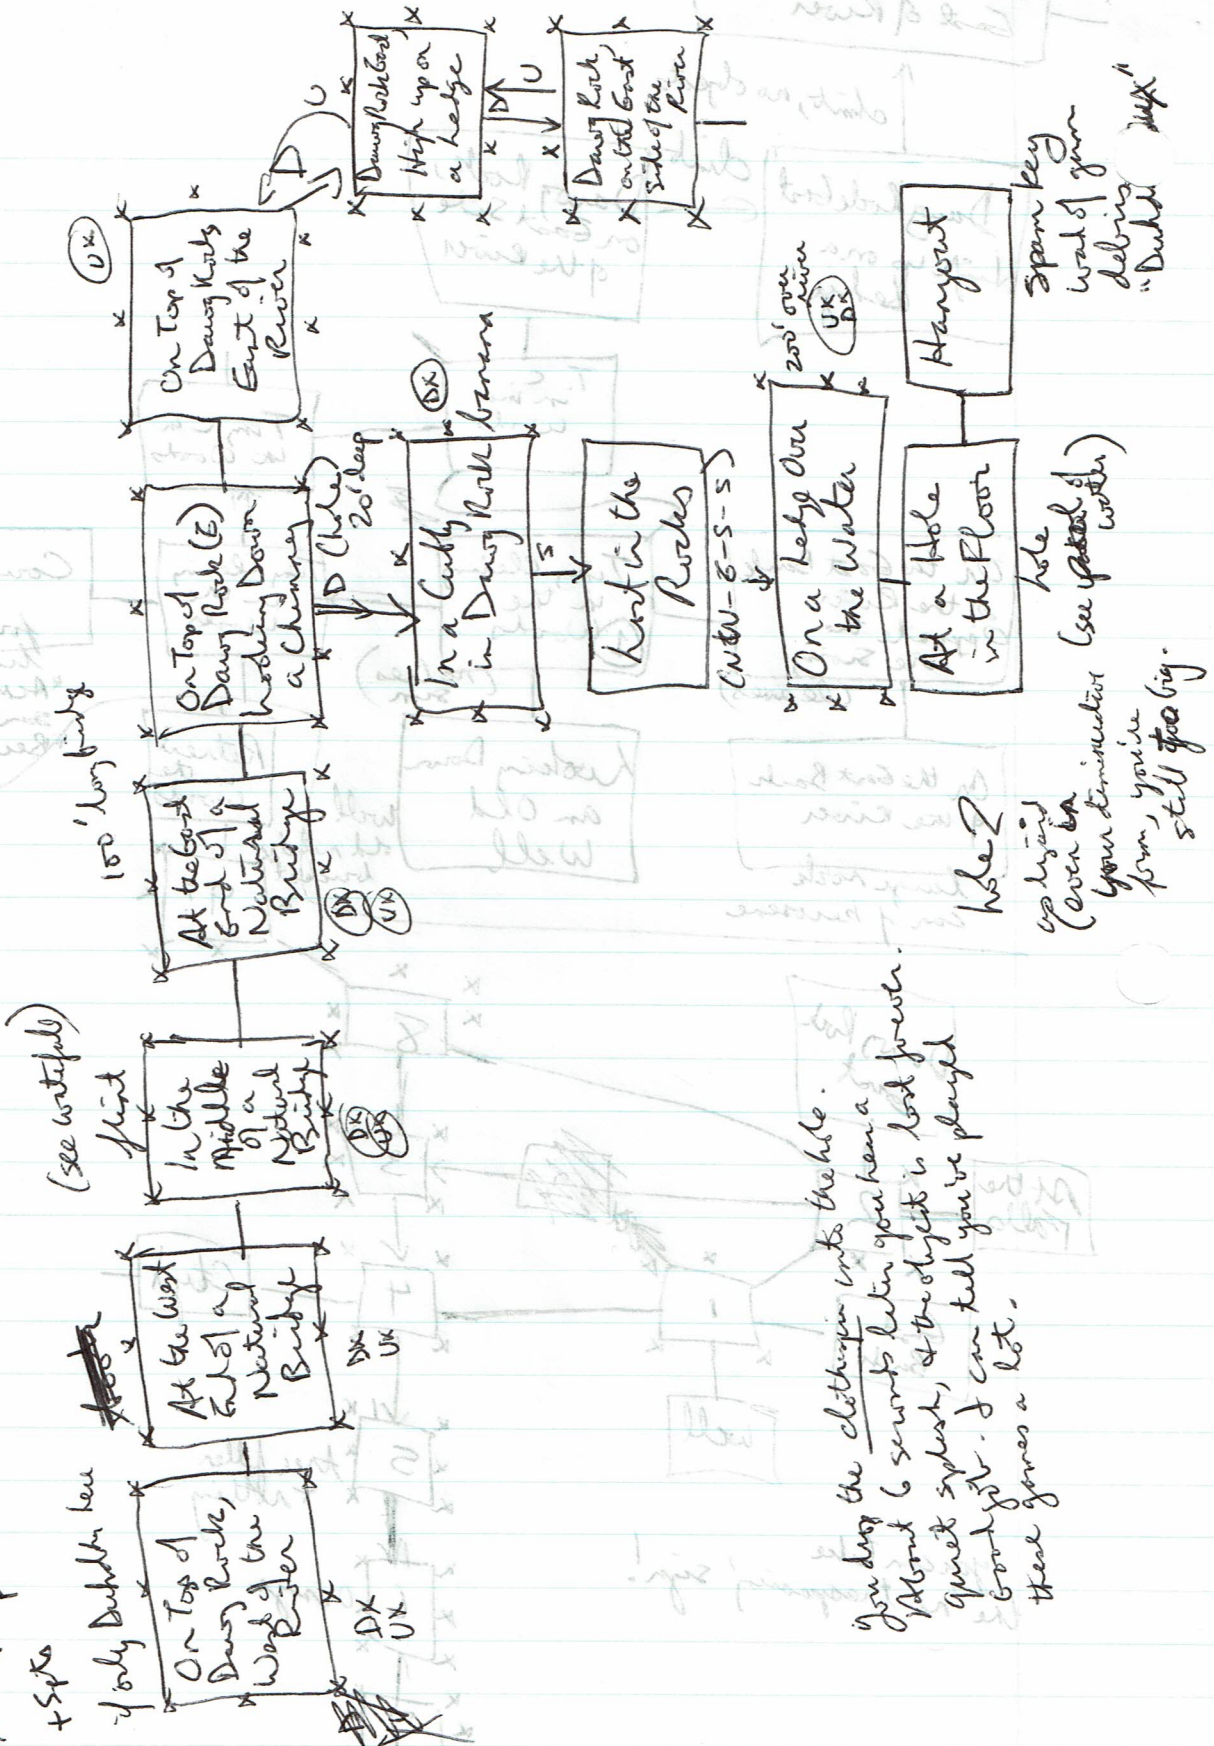 +5pts
if only Duhdha here
On Top of
Dawg Rock,
West of the
River
DX
UX
At the West
End of a
Natural
Bridge
DX
UX
(see waterfall)
flint
In the
Middle
of a
Natural
Bridge
DX
UX
100' long bridge
At the East
End of a
Natural
Bridge
DX
UX
On Top of
Dawg Rock (E)
Looking Down
a Chimney
D (hole)
20' deep
UX
On Top of
Dawg Rock,
East of the
River
D
U
Dawg Rock East,
High up on
a Ledge
D
U
Dawg Rock,
on the East
Side of the
River
In a Cubby
in Dawg Rock
DX
banana
S
Lost in the
Rocks
On a Ledge Over
the Water
200' over
river
UX
DX
At a Hole
in the Floor
hole
Hangout
spam key
wad of gum
debris
"Duhdha
hole?
(even in
your diminutive
form, you're
still too big.
You drop the clothespin into the hole.
About 6 seconds later you hear a
quiet splash, & the object is lost forever.
Good job. I can tell you've played
these games a lot.